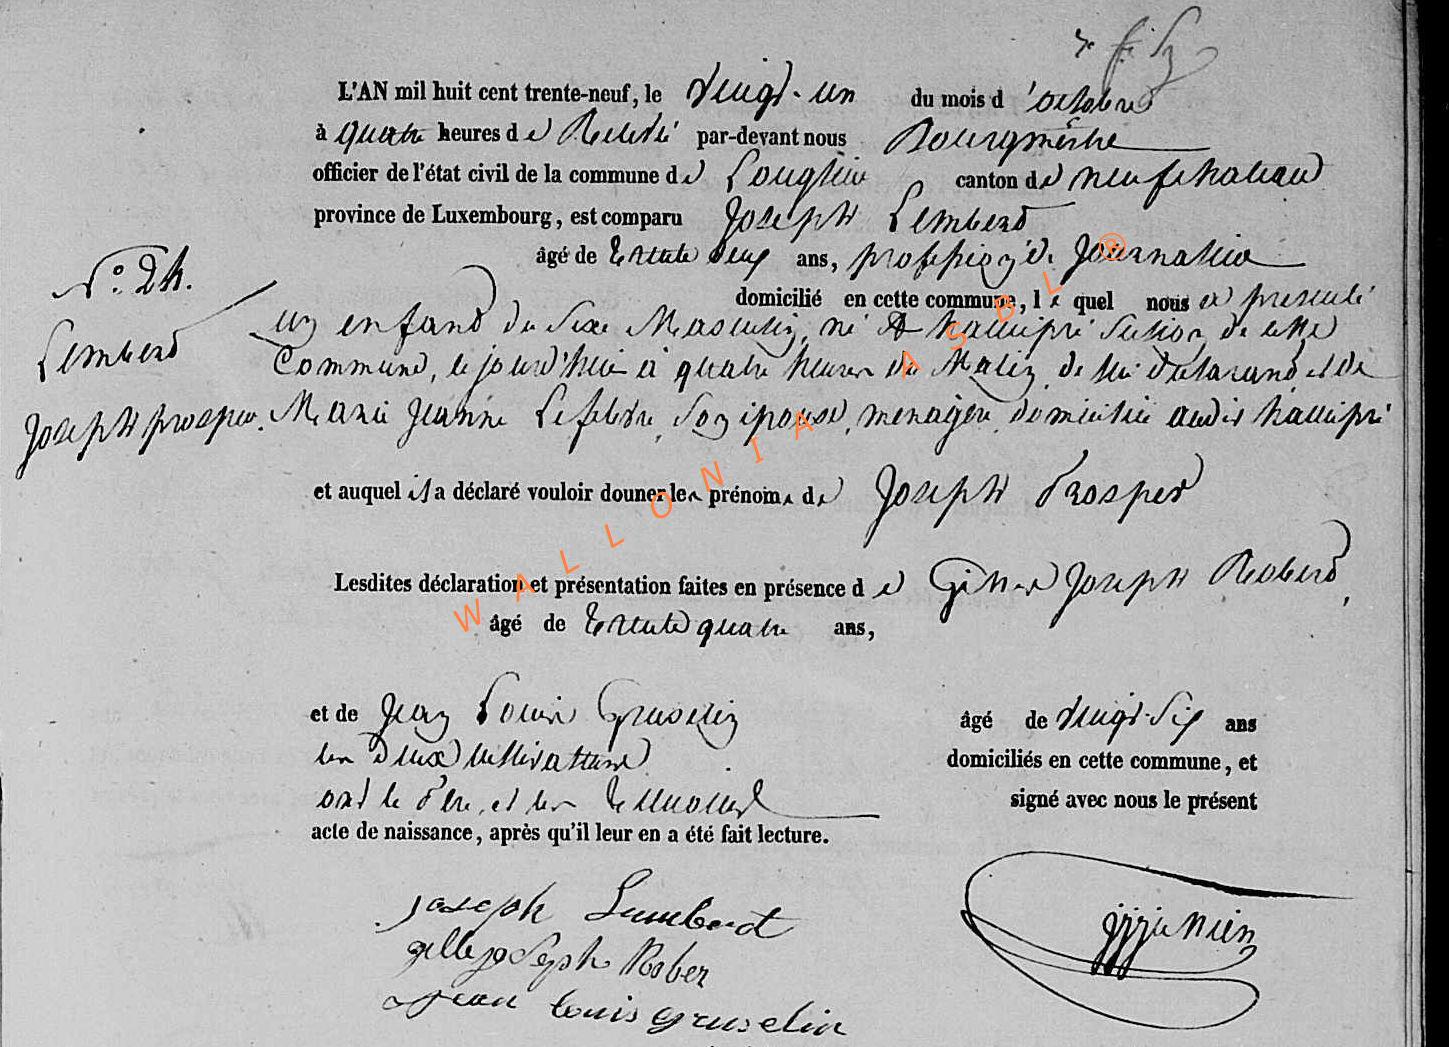 L'AN mil huit cent trente-neuf, le vingt-un du mois d'octobre
à quatre heures de Relevé par-devant nous Bourgmestre
officier de l'état civil de la commune de Longlier canton de neufchateau
province de Luxembourg, est comparu Joseph Lembert
âgé de trente deux ans, profession de Journalier
domicilié en cette commune, lequel nous a presenté
N.° 24.
Lembert
Joseph prosper.
un enfant du Sexe Masculin, né A hamipré Section de cette
Commune, le jourd'hui à quatre heures du Matin, de lui déclarant, et de
Marie Jeanne Lefebvre, Son épouse, menagère, domiciliée audit hamipré
et auquel il a déclaré vouloir donner les prénoms de Joseph Prosper
Lesdites déclaration et présentation faites en présence de Gilles Joseph Robert,
âgé de trente quatre ans,
et de Jean Louis Gruselin âgé de vingt-six ans
les deux cultivateurs domiciliés en cette commune, et
ont le Père, et les témoins signé avec nous le présent
acte de naissance, après qu'il leur en a été fait lecture.
joseph Lambert
gille joseph Rober
jean louis gruselin
WALLONIA ASBL ®